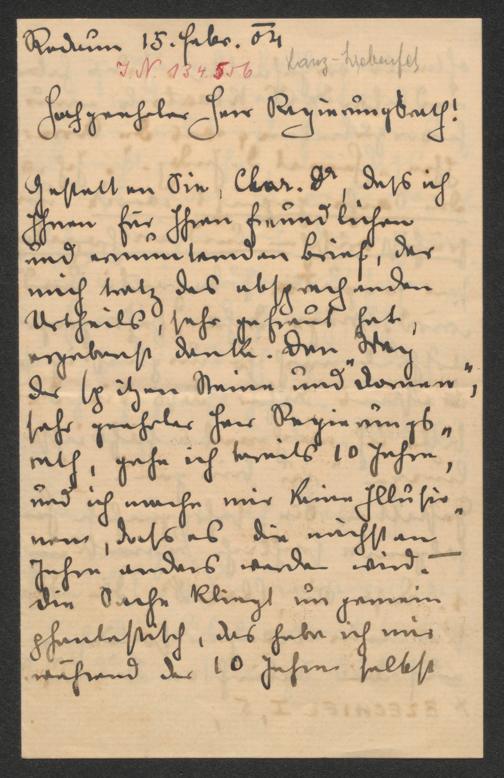 Rodaun 15. Febr. 04
I.N. 134.556
Lanz-Liebenfels
Hochgeehrter Herr Regierungsrath!
Gestatten Sie, Char. Dr, daß ich
Ihnen für Ihren freundlichen
und ermunternden Brief, der
mich trotz des absprechenden
Urtheils, sehr gefreut hat,
ergebenst danke. Den Weg
der spitzen Steine und "Dornen",
sehr geehrter Herr Regierungs-
rath, gehe ich bereits 10 Jahre,
und ich mache mir keine Illusio-
nen, daß es die nächsten
Jahre anders werden wird. —
Die Sache klingt ungemein
phantastisch, das habe ich mir
während der 10 Jahre selbst